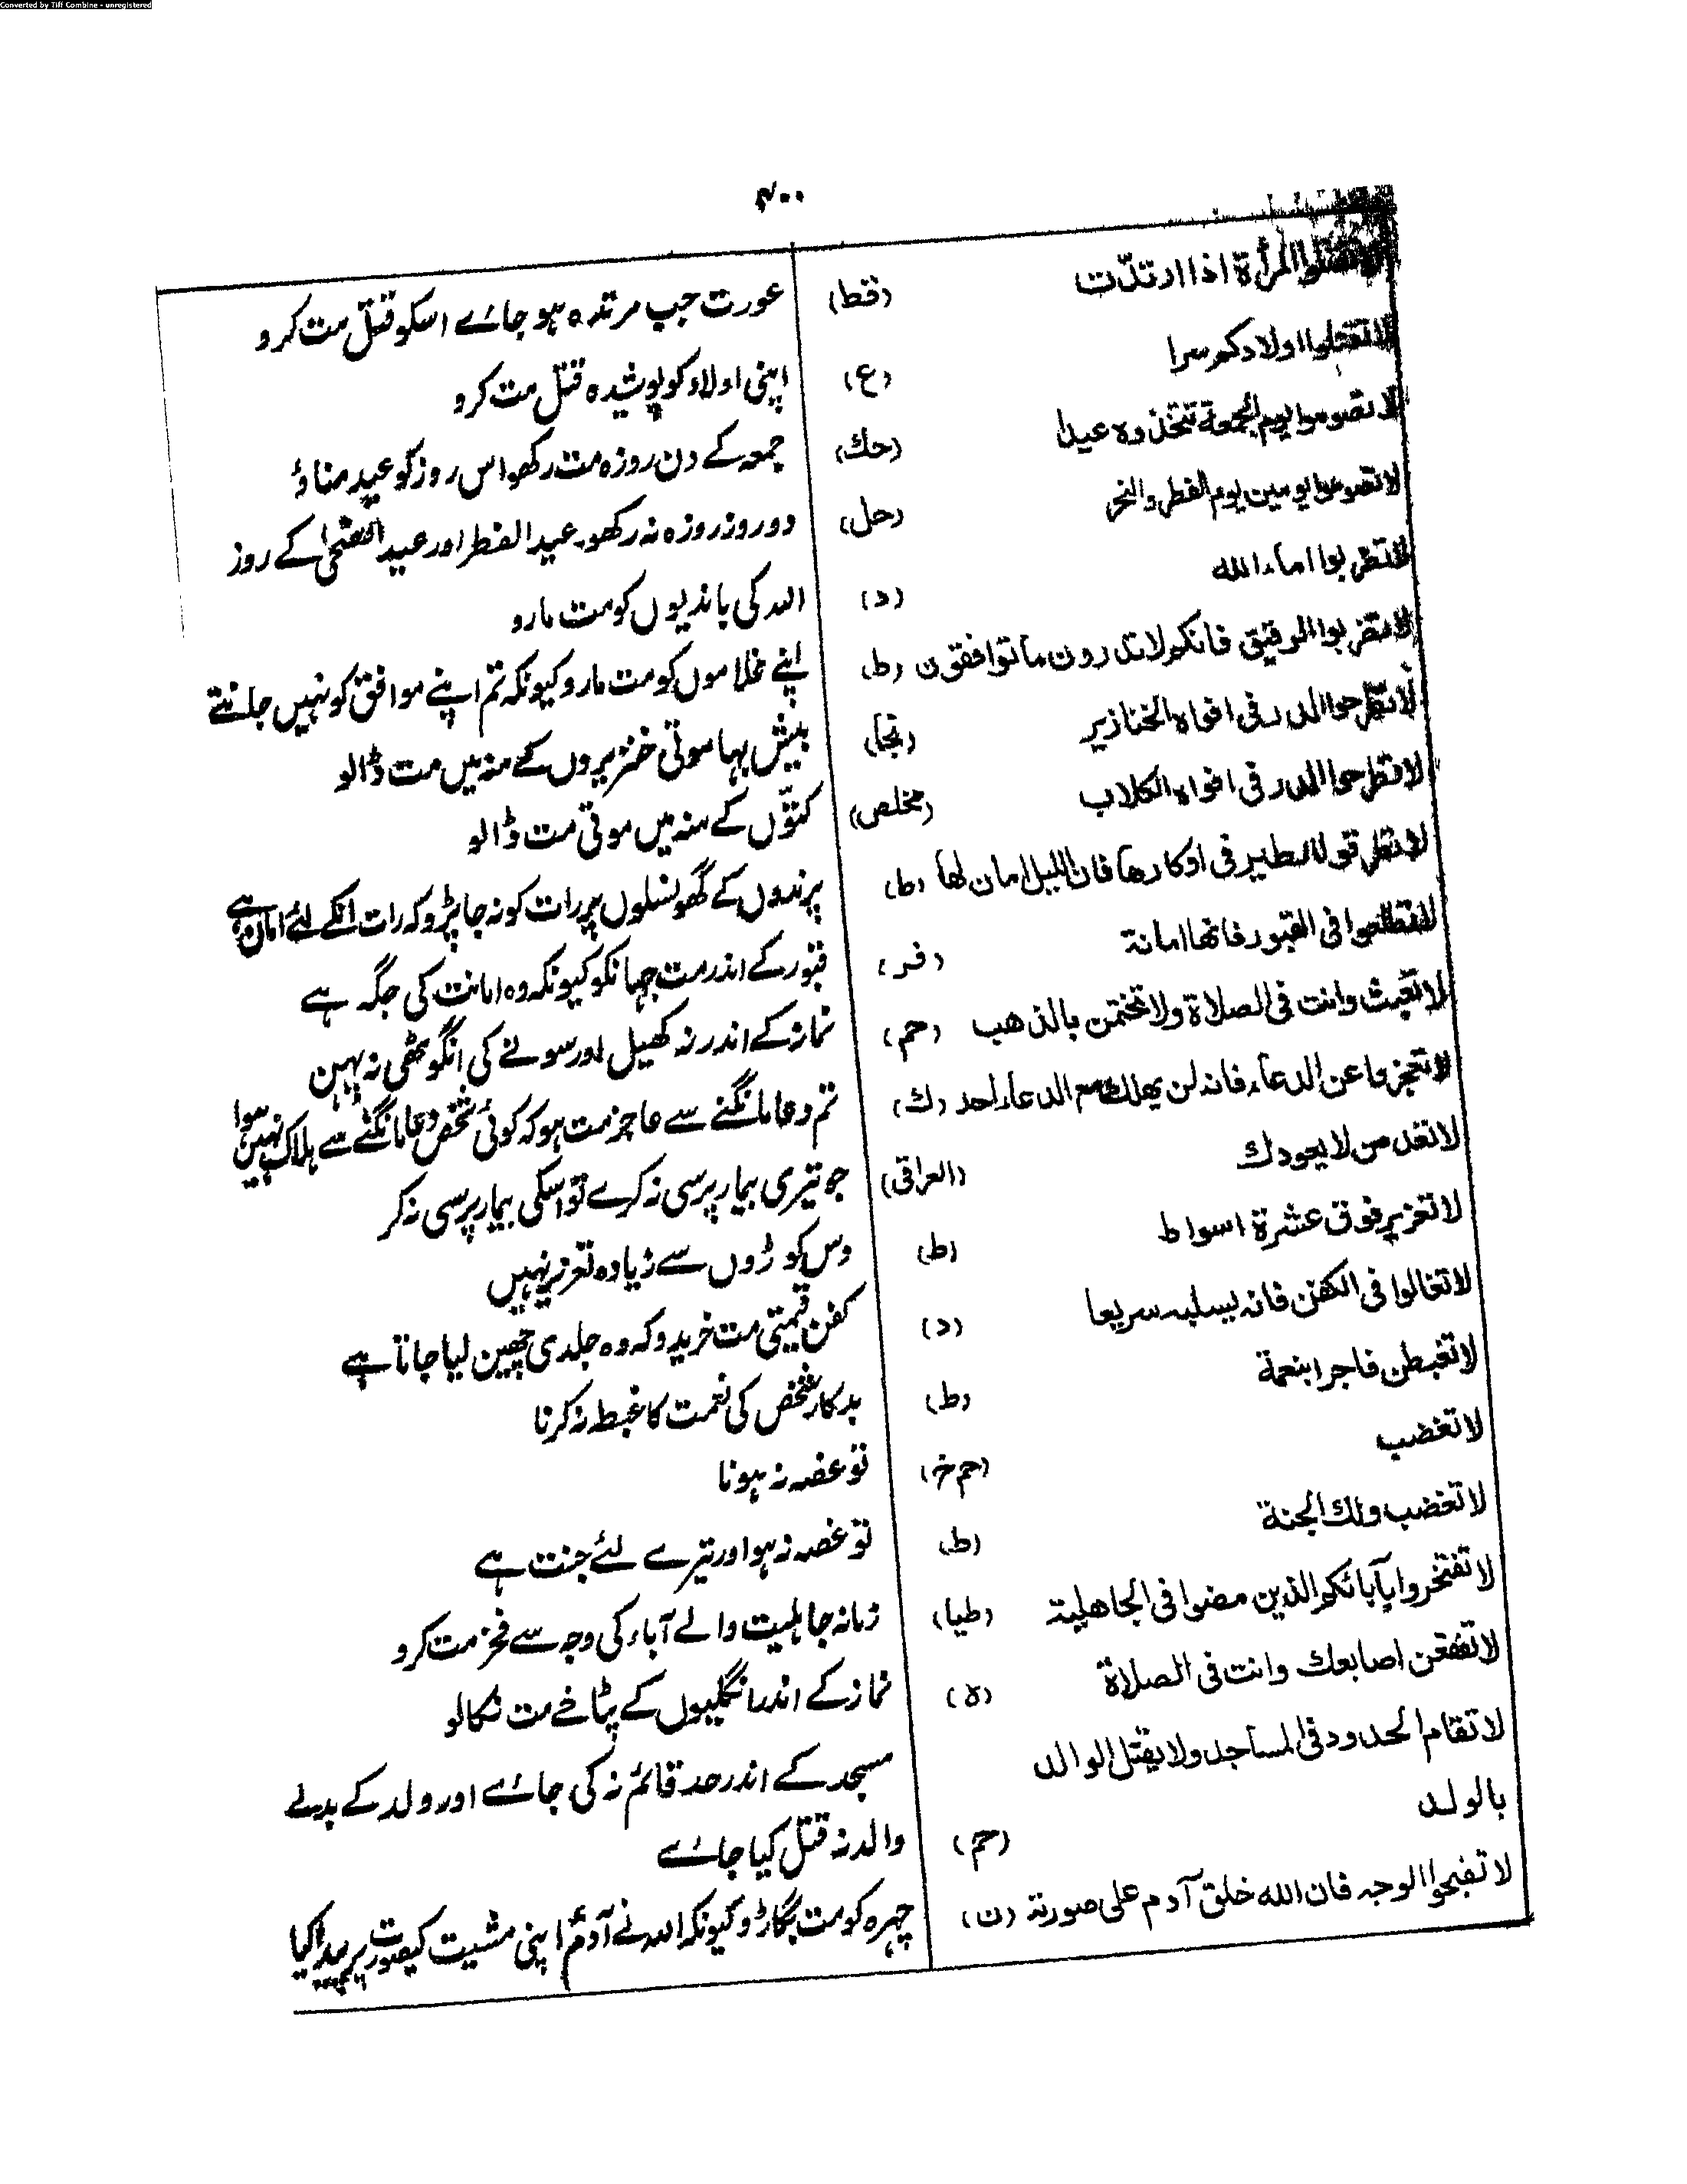 Converted by Tiff Combine - unregistered
۴۰۰
المرأة اذا ارتدّت (قط) عورت جب مرتدہ ہو جائے اسکو قتل مت کرو
لا تقتلوا اولادكم سرا (ع) اپنی اولاد کو پوشیدہ قتل مت کرو
لا تصوموا يوم الجمعة تتخذوه عيدا (حك) جمعہ کے دن روزہ مت رکھو اس روز کو عید مناؤ
لا تصوموا يومين يوم الفطر والنحر (حل) دو روز روزہ نہ رکھو۔ عید الفطر اور عید الضحٰی کے روز
لا تضربوا اماء الله (د) اللہ کی باندیوں کو مت مارو
لا تضربوا الرقيق فانكم لا تدرون ما توافقون (ط) اپنے غلاموں کو مت مارو کیونکہ تم اپنے موافق کو نہیں جانتے
لا تطرحوا الدر فى افواه الخنازير (نجا) بیش بہا موتی خنزیروں کے منہ میں مت ڈالو
لا تطرحوا الدر فى افواه الكلاب (مخلص) کتّوں کے منہ میں موتی مت ڈالو
لا تطرقوا الطير فى اوكارها فان الليل امان لها (ط) پرندوں کے گھونسلوں پر رات کو نہ جا پڑو کہ رات انکے لئے امان ہے
فى القبور فانها امانة (فر) قبور کے اندر مت جھانکو کیونکہ وہ امانت کی جگہ ہے
لا تعبث وانت فى الصلاة ولا تختمن بالذهب (حم) نماز کے اندر نہ کھیل اور سونے کی انگوٹھی نہ پہن
لا تعجزوا عن الدعاء فانه لن يهلك مع الدعاء احد (ك) تم دعا مانگنے سے عاجز مت ہو کہ کوئی شخص دعا مانگنے سے ہلاک نہیں ہوا
لا تعد من لا يعودك (العراقى) جو تیری بیمار پرسی نہ کرے تو اسکی بیمار پرسی نہ کر
لا تعزير فوق عشرة اسواط (ط) دس کوڑوں سے زیادہ تعزیر نہیں
لا تغالوا فى الكفن فانه يسلبه سريعا (د) کفن قیمتی مت خریدو کہ وہ جلدی چھین لیا جاتا ہے
لا تغبطن فاجرا بنعمة (ط) بدکار شخص کی نعمت کا غبطہ نہ کرنا
لا تغضب (حم خ) تو غصہ نہ ہونا
لا تغضب ولك الجنة (ط) تو غصہ نہ ہو اور تیرے لئے جنت ہے
لا تفتخروا بآبائكم الذين مضوا فى الجاهلية (طيا) زمانہ جاہلیت والے آباء کی وجہ سے فخر مت کرو
لا تفقعن اصابعك وانت فى الصلاة (ه) نماز کے اندر انگلیوں کے پٹاخے مت نکالو
لا تقام الحدود فى المساجد ولا يقتل الوالد مسجد کے اندر حد قائم نہ کی جائے اور ولد کے بدلے
بالولد (حم) والد نہ قتل کیا جائے
لا تقبحوا الوجه فان الله خلق آدم على صورته (ن) چہرہ کو مت بگاڑو کیونکہ اللہ نے آدمؑ اپنی مشیت کیصورت پر پیدا کیا